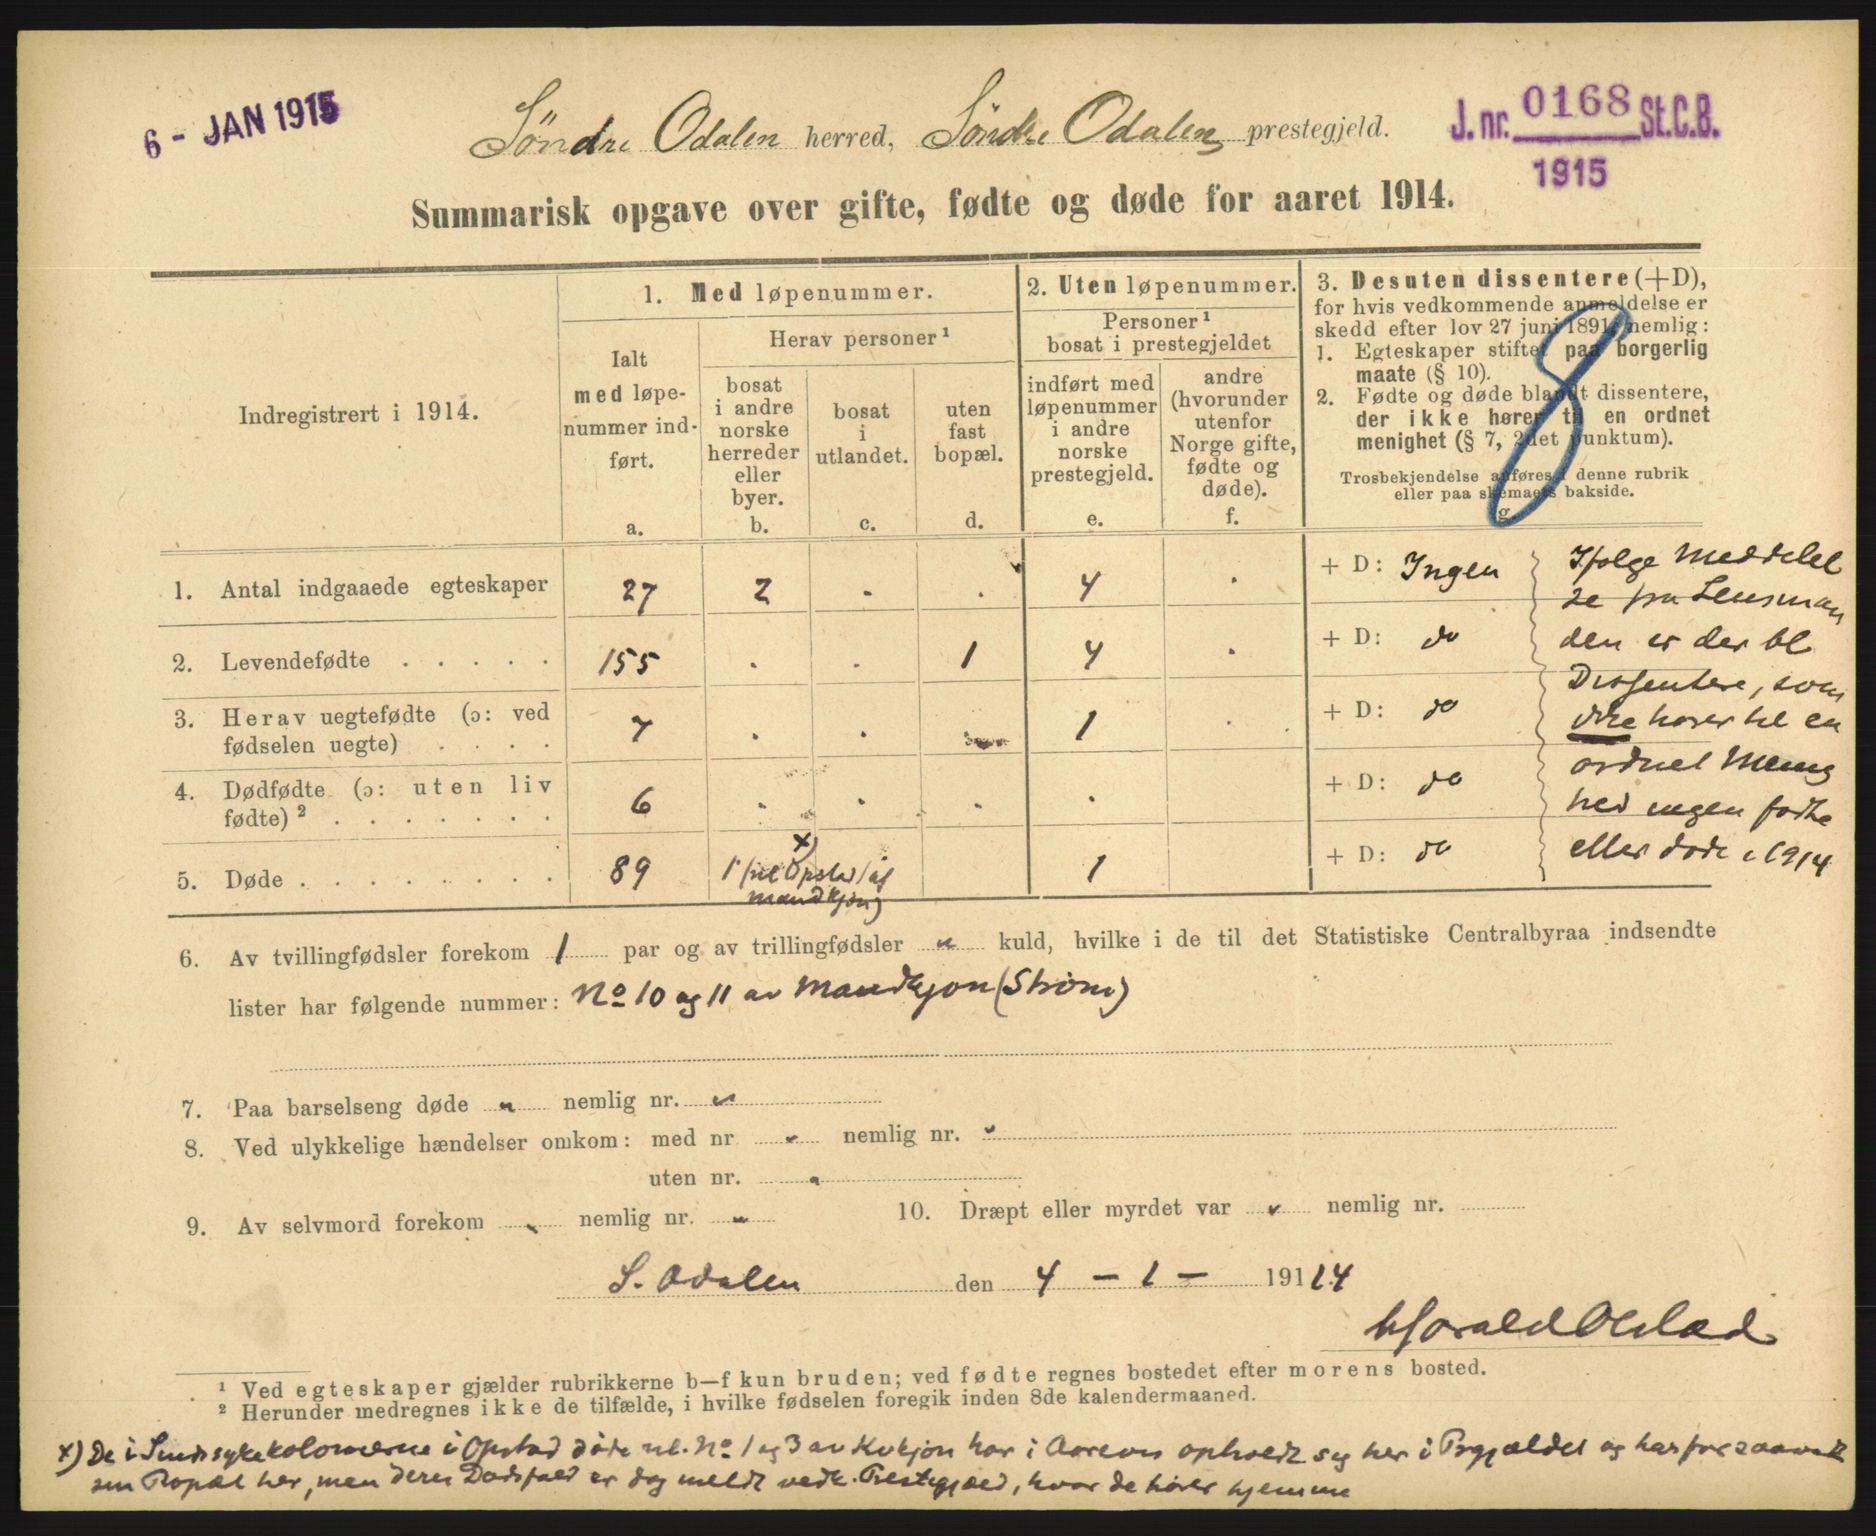 6 - JAN 1915
Søndre Odalen herred, Søndre Odalen prestegjeld.
J. nr. 0168 St. C. B.
1915
Summarisk opgave over gifte, fødte og døde for aaret 1914.
Indregistrert i 1914.
1. Med løpenummer.
Ialt
med løpe-
nummer ind-
ført.
a.
Herav personer ¹
bosat
i andre
norske
herreder
eller
byer.
b.
bosat
i
utlandet.
c.
uten
fast
bopæl.
d.
2. Uten løpenummer.
Personer ¹
bosat i prestegjeldet
indført med
løpenummer
i andre
norske
prestegjeld.
e.
andre
(hvorunder
utenfor
Norge gifte,
fødte og
døde).
f.
3. Desuten dissentere (+D),
for hvis vedkommende anmeldelse er
skedd efter lov 27 juni 1891, nemlig:
1. Egteskaper stiftet paa borgerlig
maate (§ 10).
2. Fødte og døde blandt dissentere,
der ikke hører til en ordnet
menighet (§ 7, 2det punktum).
Trosbekjendelse anføres i denne rubrik
eller paa skemaets bakside.
g.
8
1. Antal indgaaede egteskaper 27 2 . . 4 . + D: Ingen
2. Levendefødte . . . . . 155 . . 1 4 . + D: do
3. Herav uegtefødte (ɔ: ved
fødselen uegte) . . . . 7 . . 1 . + D: do
4. Dødfødte (ɔ: uten liv
fødte) ² . . . . . . . 6 . . . . + D: do
5. Døde . . . . . . . . . 89 1 (nl Opstad / af
mandkjøn) x) 1 + D: do
Ifølge Meddelel
se fra Lensman
den er der bl
Dissentere, som
ikke hører til en
ordnet Menig
hed ingen fødte
eller døde i 1914
6. Av tvillingfødsler forekom 1 par og av trillingfødsler " kuld, hvilke i de til det Statistiske Centralbyraa indsendte
lister har følgende nummer: No 10 og 11 av Mandkjøn (Strøm)
7. Paa barselseng døde " nemlig nr. "
8. Ved ulykkelige hændelser omkom: med nr " nemlig nr. "
uten nr. "
9. Av selvmord forekom " nemlig nr. "
10. Dræpt eller myrdet var " nemlig nr.
S. Odalen den 4 - 1 - 19114
¹ Ved egteskaper gjælder rubrikkerne b—f kun bruden; ved fødte regnes bostedet efter morens bosted.
² Herunder medregnes ikke de tilfælde, i hvilke fødselen foregik inden 8de kalendermaaned.
x) De i Sindssykekolonierne i Opstad døde nl. No 1 og 3 av Kvkjøn har i Aarevis opholdt sig her i Prgjældet og har forsaavidt
sin Bopæl her, men deres Dødsfald er dog meldt vedk. Prestegjæld, hvor de hører hjemme